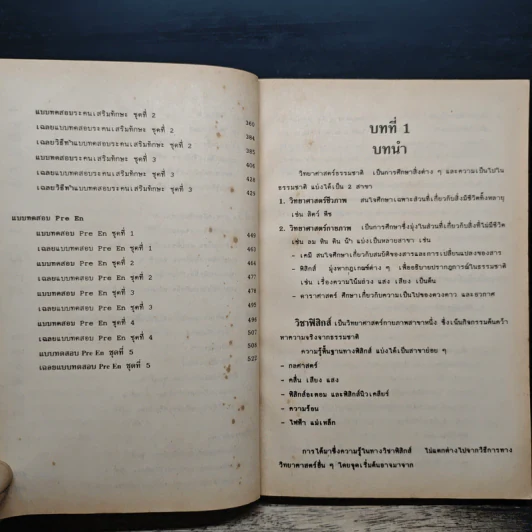 แบบทดสอบระคนเสริมทักษะ ชุดที่ 2 360
เฉลยแบบทดสอบระคนเสริมทักษะ ชุดที่ 2 384
เฉลยวิธีทำแบบทดสอบระคนเสริมทักษะ ชุดที่ 2 385
แบบทดสอบระคนเสริมทักษะ ชุดที่ 3 408
เฉลยแบบทดสอบระคนเสริมทักษะ ชุดที่ 3 428
เฉลยวิธีทำแบบทดสอบระคนเสริมทักษะ ชุดที่ 3 429
แบบทดสอบ Pre En
แบบทดสอบ Pre En ชุดที่ 1 449
เฉลยแบบทดสอบ Pre En ชุดที่ 1 463
แบบทดสอบ Pre En ชุดที่ 2 464
เฉลยแบบทดสอบ Pre En ชุดที่ 2 477
แบบทดสอบ Pre En ชุดที่ 3 478
เฉลยแบบทดสอบ Pre En ชุดที่ 3 495
แบบทดสอบ Pre En ชุดที่ 4 496
เฉลยแบบทดสอบ Pre En ชุดที่ 4 507
แบบทดสอบ Pre En ชุดที่ 5 508
เฉลยแบบทดสอบ Pre En ชุดที่ 5 522
บทที่ 1
บทนำ
วิทยาศาสตร์ธรรมชาติ เป็นการศึกษาสิ่งต่าง ๆ และความเป็นไปใน
ธรรมชาติ แบ่งได้เป็น 2 สาขา
1. วิทยาศาสตร์ชีวภาพ สนใจศึกษาเฉพาะส่วนที่เกี่ยวกับสิ่งมีชีวิตทั้งหลาย
เช่น สัตว์ พืช
2. วิทยาศาสตร์กายภาพ เป็นการศึกษาซึ่งมุ่งในส่วนที่เกี่ยวกับสิ่งที่ไม่มีชีวิต
เช่น ลม หิน ดิน น้ำ แบ่งเป็นหลายสาขา เช่น
- เคมี สนใจศึกษาเกี่ยวกับสมบัติของสารและการเปลี่ยนแปลงของสาร
- ฟิสิกส์ มุ่งหากฎเกณฑ์ต่าง ๆ เพื่ออธิบายปรากฏการณ์ในธรรมชาติ
เช่น เรื่องความโน้มถ่วง แสง เสียง เป็นต้น
- ดาราศาสตร์ ศึกษาเกี่ยวกับความเป็นไปของดวงดาว และอวกาศ
วิชาฟิสิกส์ เป็นวิทยาศาสตร์กายภาพสาขาหนึ่ง ซึ่งเน้นกิจกรรมค้นคว้า
หาความจริงจากธรรมชาติ
ความรู้พื้นฐานทางฟิสิกส์ แบ่งได้เป็นสาขาย่อย ๆ
- กลศาสตร์
- คลื่น เสียง แสง
- ฟิสิกส์อะตอม และฟิสิกส์นิวเคลียร์
- ความร้อน
- ไฟฟ้า แม่เหล็ก
การได้มาซึ่งความรู้ในทางวิชาฟิสิกส์ ไม่แตกต่างไปจากวิธีการทาง
วิทยาศาสตร์อื่น ๆ โดยจุดเริ่มต้นอาจมาจาก